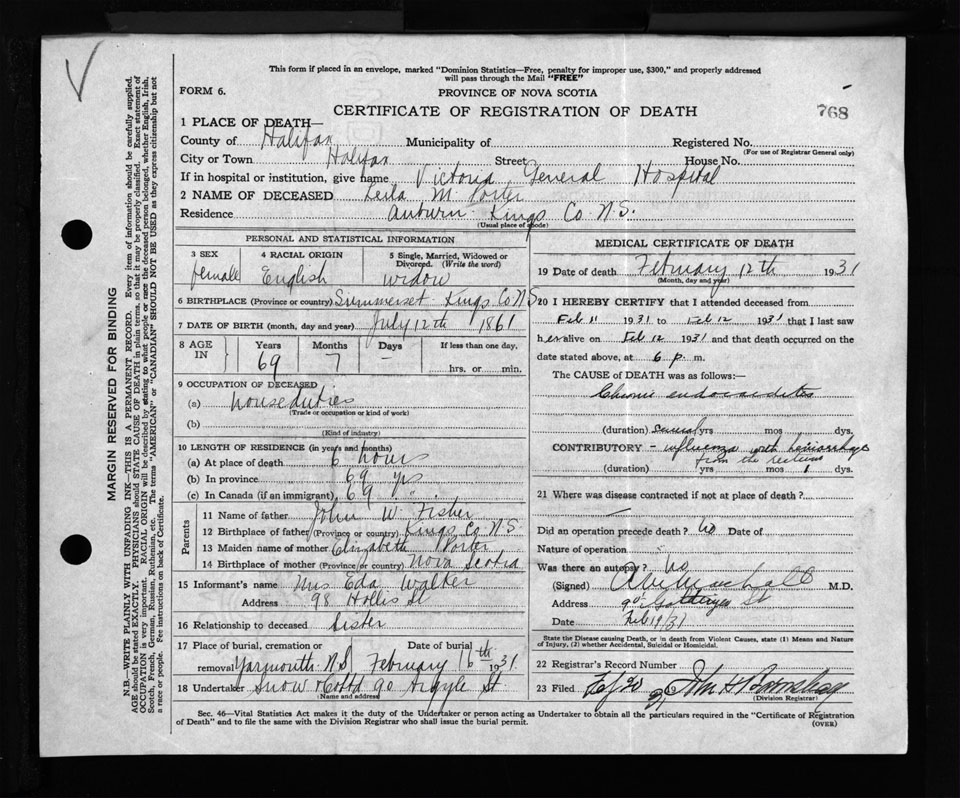 This form if placed in an envelope, marked "Dominion Statistics—Free, penalty for improper use, $300," and properly addressed
will pass through the Mail "FREE"
FORM 6.
PROVINCE OF NOVA SCOTIA
CERTIFICATE OF REGISTRATION OF DEATH
768
1 PLACE OF DEATH—
County of Halifax Municipality of Registered No.
(For use of Registrar General only)
City or Town Halifax Street House No.
If in hospital or institution, give name Victoria General Hospital
2 NAME OF DECEASED Leila M. Porter
Residence Auburn Kings Co N.S.
(Usual place of abode)
PERSONAL AND STATISTICAL INFORMATION
3 SEX 4 RACIAL ORIGIN 5 Single, Married, Widowed or
Divorced. (Write the word)
female English widow
6 BIRTHPLACE (Province or country) Summerset Kings Co N S
7 DATE OF BIRTH (month, day and year) July 12th 1861
8 AGE IN Years Months Days If less than one day,
69 7 - hrs. or min.
9 OCCUPATION OF DECEASED
(a) house duties
(Trade or occupation or kind of work)
(b)
(Kind of industry)
10 LENGTH OF RESIDENCE (in years and months)
(a) At place of death 6 hours
(b) In province 69 yrs
(c) In Canada (if an immigrant) 69 "
Parents
11 Name of father John W. Fisher
12 Birthplace of father (Province or country) Kings Co N.S.
13 Maiden name of mother Elizabeth Porter
14 Birthplace of mother (Province or country) Nova Scotia
15 Informant's name Mrs Eda Walker
Address 98 Hollis St
16 Relationship to deceased Sister
17 Place of burial, cremation or Date of burial
removal Yarmouth N.S February 16th 1931
18 Undertaker Snow & Co Ltd 90 Argyle St
MEDICAL CERTIFICATE OF DEATH
19 Date of death February 12th 1931
(Month, day and year)
20 I HEREBY CERTIFY that I attended deceased from
Feb 11 1931 to Feb 12 1931 that I last saw
her alive on Feb 12 1931 and that death occurred on the
date stated above, at 6 p. m.
The CAUSE of DEATH was as follows:—
Chronic endocarditis
(duration) several yrs mos dys.
CONTRIBUTORY - influenza with hemorrhage
from the rectum
(duration) yrs mos 1 dys.
21 Where was disease contracted if not at place of death?
Did an operation precede death? No Date of
Nature of operation
Was there an autopsy? No
(Signed) M.D.
Address St
Date Feb 19/31
State the Disease causing Death, or in death from Violent Causes, state (1) Means and Nature
of Injury, (2) whether Accidental, Suicidal or Homicidal.
22 Registrar's Record Number
23 Filed Feb 20 31
(Division Registrar)
Sec. 46—Vital Statistics Act makes it the duty of the Undertaker or person acting as Undertaker to obtain all the particulars required in the "Certificate of Registration
of Death" and to file the same with the Division Registrar who shall issue the burial permit.
(OVER)
MARGIN RESERVED FOR BINDING
N.B.—WRITE PLAINLY WITH UNFADING INK—THIS IS A PERMANENT RECORD. Every item of information should be carefully supplied.
AGE should be stated EXACTLY. PHYSICIANS should STATE CAUSE OF DEATH in plain terms, so that it may be properly classified. Exact statement of
OCCUPATION is very important. RACIAL ORIGIN will be described by stating to what people or race the deceased person belonged, whether English, Irish,
Scotch, French, German, Russian, Ruthenian, etc. The terms "AMERICAN" or "CANADIAN" SHOULD NOT BE USED as they express citizenship but not
a race or people. See instructions on back of Certificate.